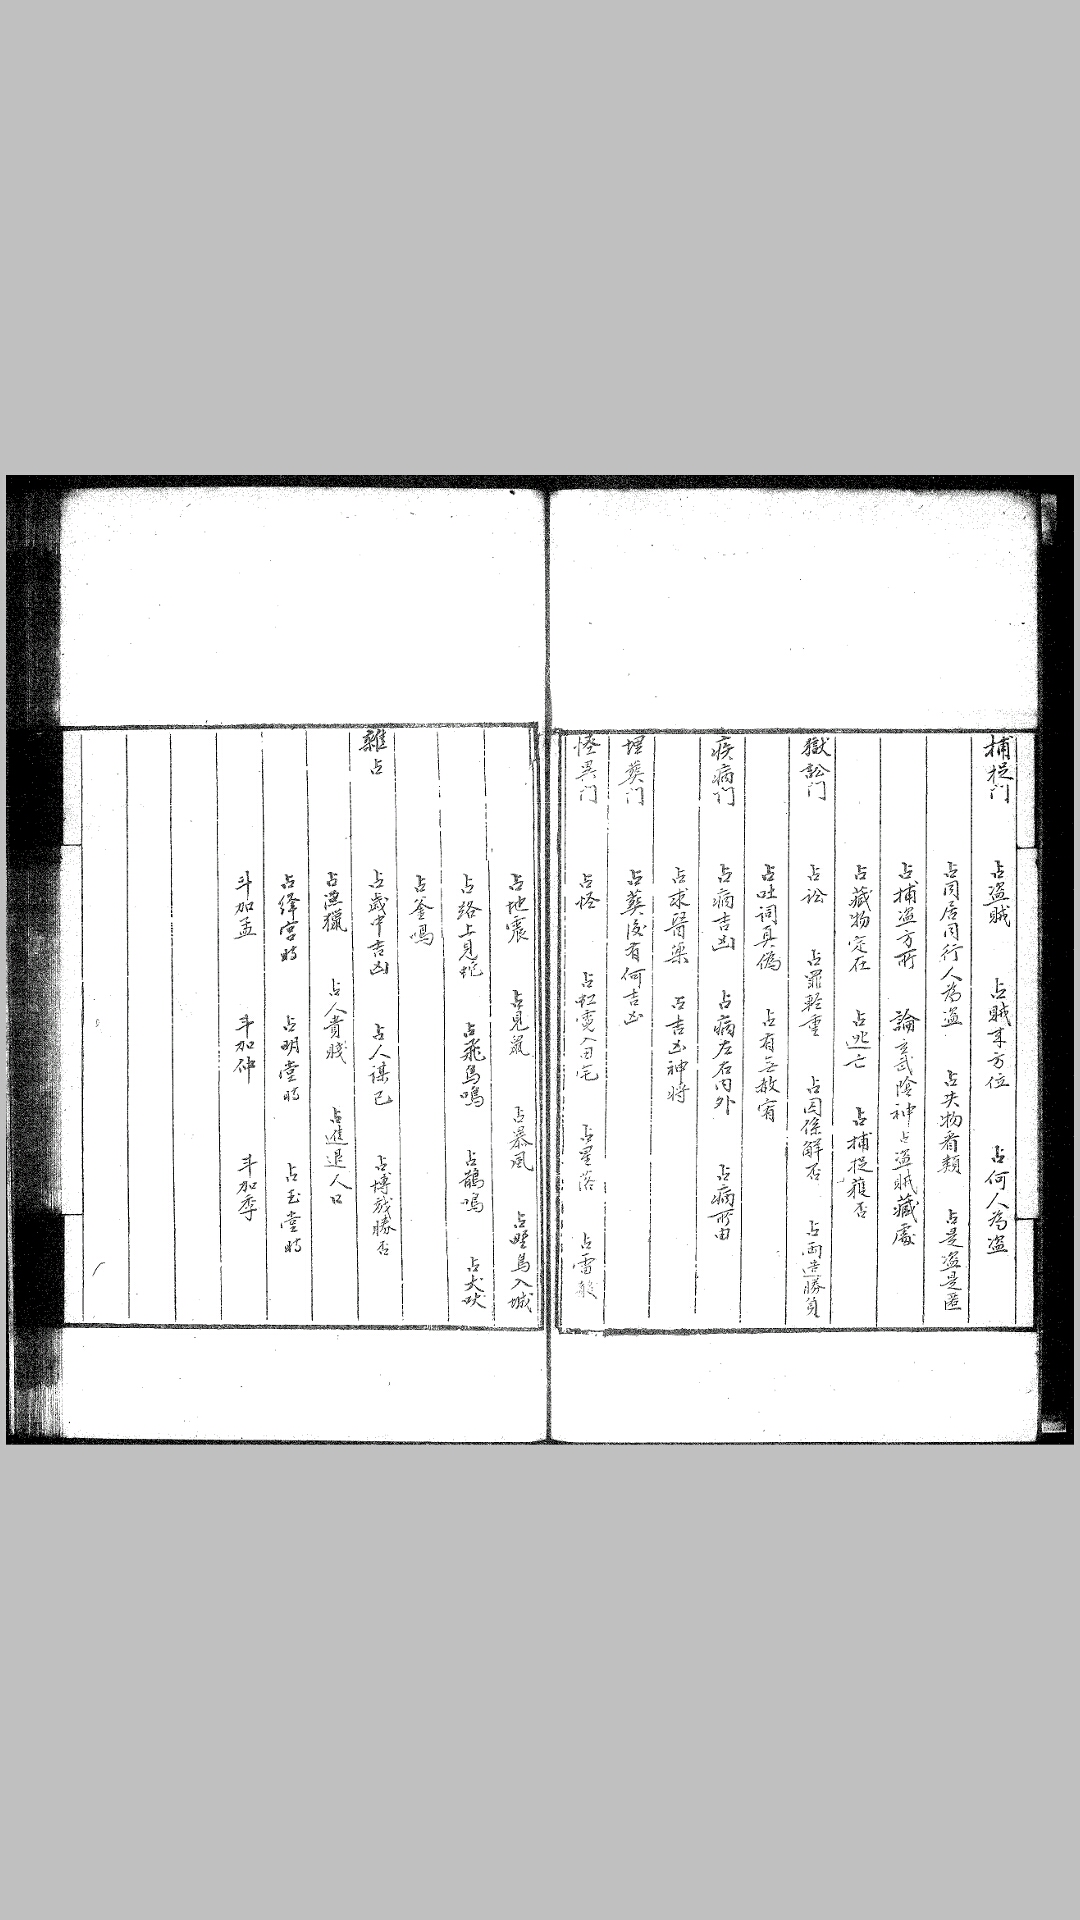 捕捉门 占盗贼 占贼来方位 占何人為盗
占同居同行人為盗 占失物看類 占是盗是匿
占捕盗方所 論玄武陰神占盗贼藏處
占藏物定在 占逃亡 占捕捉獲否
獄訟门 占讼 占罪轻重 占囚係解否 占両造勝負
占吐词真偽 占有无赦宥
疾病门 占病吉凶 占病左右内外 占病所由
占求醫藥 占吉凶神將
埋葬门 占葬後有何吉凶
怪異门 占怪 占虹霓入田宅 占星落 占雷殺
占地震 占見氣 占暴风 占野鳥入城
占路上見蛇 占飛鳥鳴 占鵲鳴 占犬吠
占釜鳴
雜占 占歲中吉凶 占人謀己 占博戏勝否
占漁獵 占人貴賤 占進退人口
占绛宮時 占明堂時 占玉堂時
斗加孟 斗加仲 斗加季